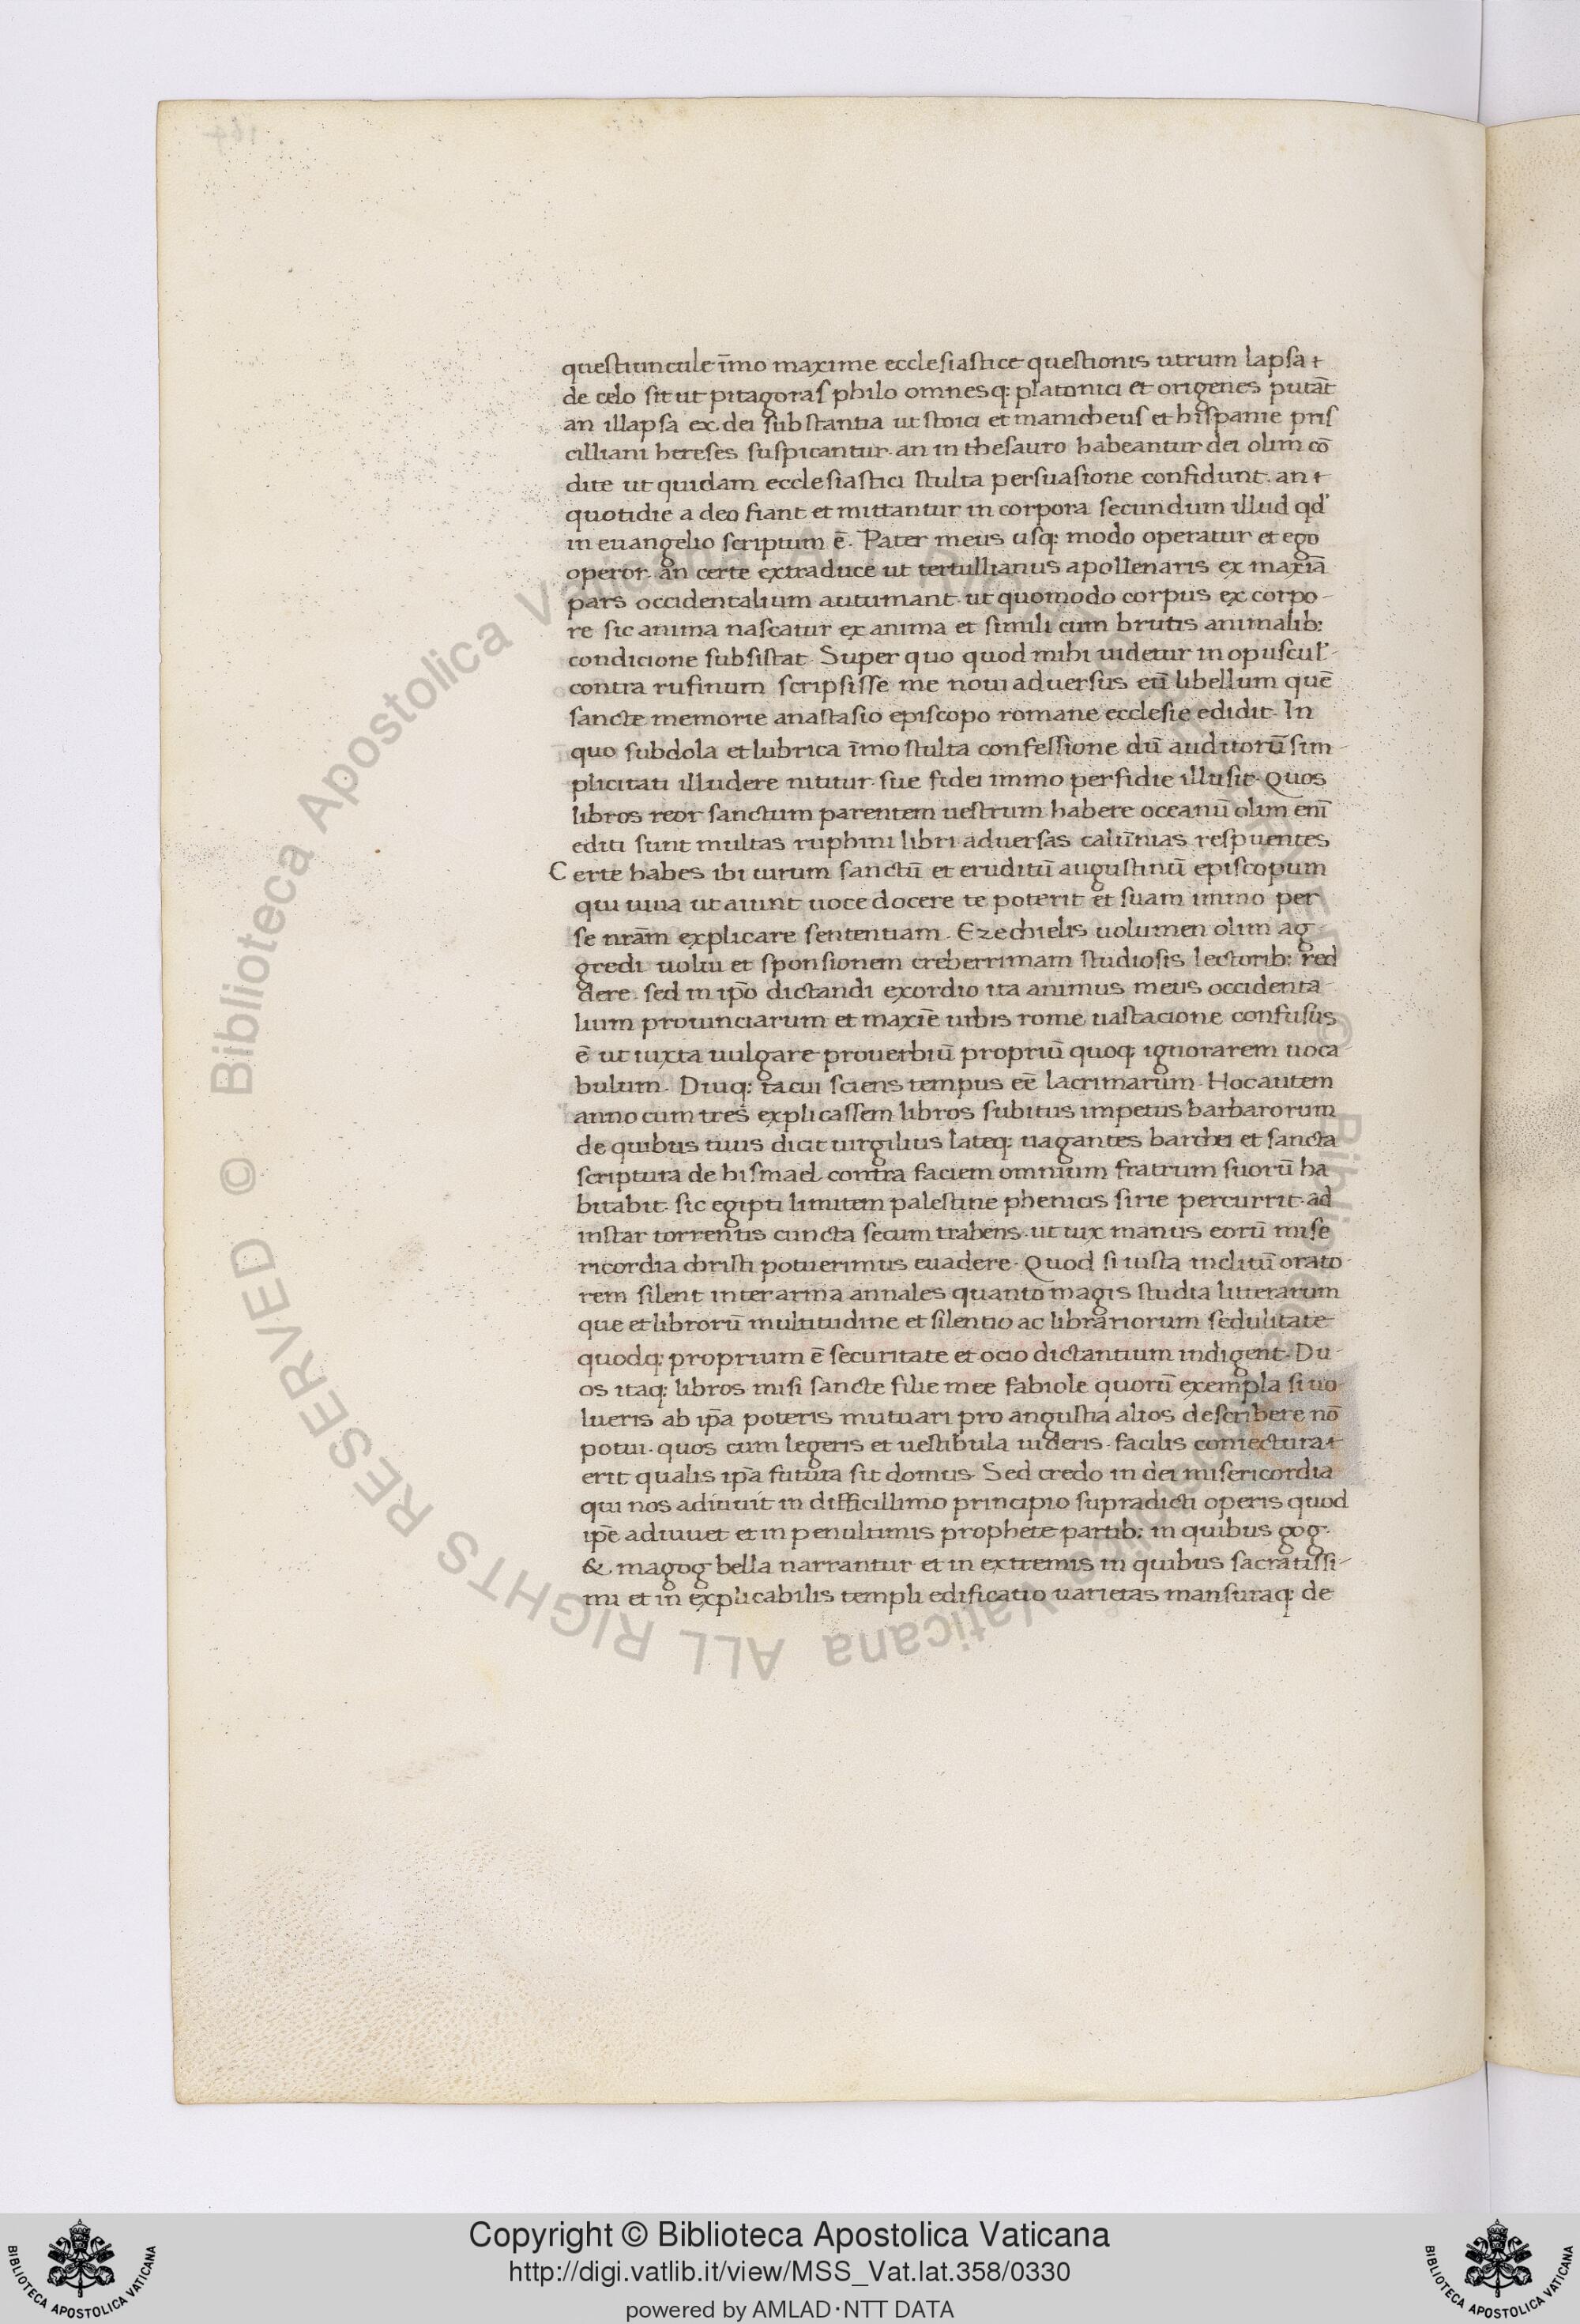 questiuncule īmo maxime ecclesiastice questionis utrum lapsa
de celo sit ut pitagoras philo omnesq; platonici et origenes putāt
an illapsa ex dei substantia ut stoici et manicheus et hispanie pris
cilliani hereses suspicantur. an in thesauro habeantur dei olim cō
dite ut quidam ecclesiastici stulta persuasione confidunt. an
quotidie a deo fiant et mittantur in corpora secundum illud qd'
in euangelio scriptum ē. Pater meus usq; modo operatur et ego
operor. an certe extraduce ut tertullianus apollenaris ex maxīa
pars occidentalium autumant. ut quomodo corpus ex corpo-
re sic anima nascatur ex anima et simili cum brutis animalib;
condicione subsistat. Super quo quod mihi uidetur in opuscul'
contra rufinum scripsisse me noui aduersus eū libellum quē
sancte memorie anastasio episcopo romane ecclesie edidit. In
quo subdola et lubrica īmo stulta confessione dū auditorū sim-
plicitati illudere nititur. sue fidei immo perfidie illusit. Quos
libros reor sanctum parentem uestrum habere occeanū olim enī
editi sunt multas ruphini libri aduersas calūnias respuentes
Certe habes ibi uirum sanctū et eruditū augustinū episcopum
qui uiua ut aiunt uoce docere te poterit et suam immo per
se nrām explicare sententiam. Ezechielis uolumen olim ag-
gredi uolui et sponsionem creberrimam studiosis lectorib; red
dere. sed in ip̄o dictandi exordio ita animus meus occidenta-
lium prouinciarum et maxīe urbis rome uastacione confusus
ē ut iuxta uulgare prouerbiū propriū quoq; ignorarem uoca-
bulum. Diuq; tacui sciens tempus eē lacrimarum. Hoc autem
anno cum tres explicassem libros subitus impetus barbarorum
de quibus tuus dicit uirgilius lateq; uagantes barchei et sancta
scriptura de hismael contra faciem omnium fratrum suorū ha
bitabit. sic egipti limitem palestine phenicis sirie percurrit. ad
instar torrentis cuncta secum trahens. ut uix manus eorū mise
ricordia christi potuerimus euadere. Quod si iusta inclitū orato-
rem silent inter arma annales quanto magis studia litterarum
que et librorū multitudine et silentio ac librariorum sedulitate
quodq; proprium ē securitate et ocio dictantium indigent. Du-
os itaq; libros misi sancte filie mee fabiole quorū exempla si uo-
lueris ab ip̄a poteris mutuari pro angustia alios describere nō
potui. quos cum legeris et uestibula uideris. facilis coniectura
erit qualis ip̄a futura sit domus. Sed credo in dei misericordia
qui nos adiuuit in difficillimo principio supradicti operis quod
ip̄e adiuuet et in penultimis prophete partib; in quibus gog.
&. magog bella narrantur et in extremis in quibus sacratissi-
mi et in explicabilis templi edificatio uarietas mansuraq; de
© Biblioteca Apostolica Vaticana ALL RIGHTS RESERVED
Copyright © Biblioteca Apostolica Vaticana
http://digi.vatlib.it/view/MSS_Vat.lat.358/0330
powered by AMLAD·NTT DATA
BIBLIOTECA APOSTOLICA VATICANA
BIBLIOTECA APOSTOLICA VATICANA